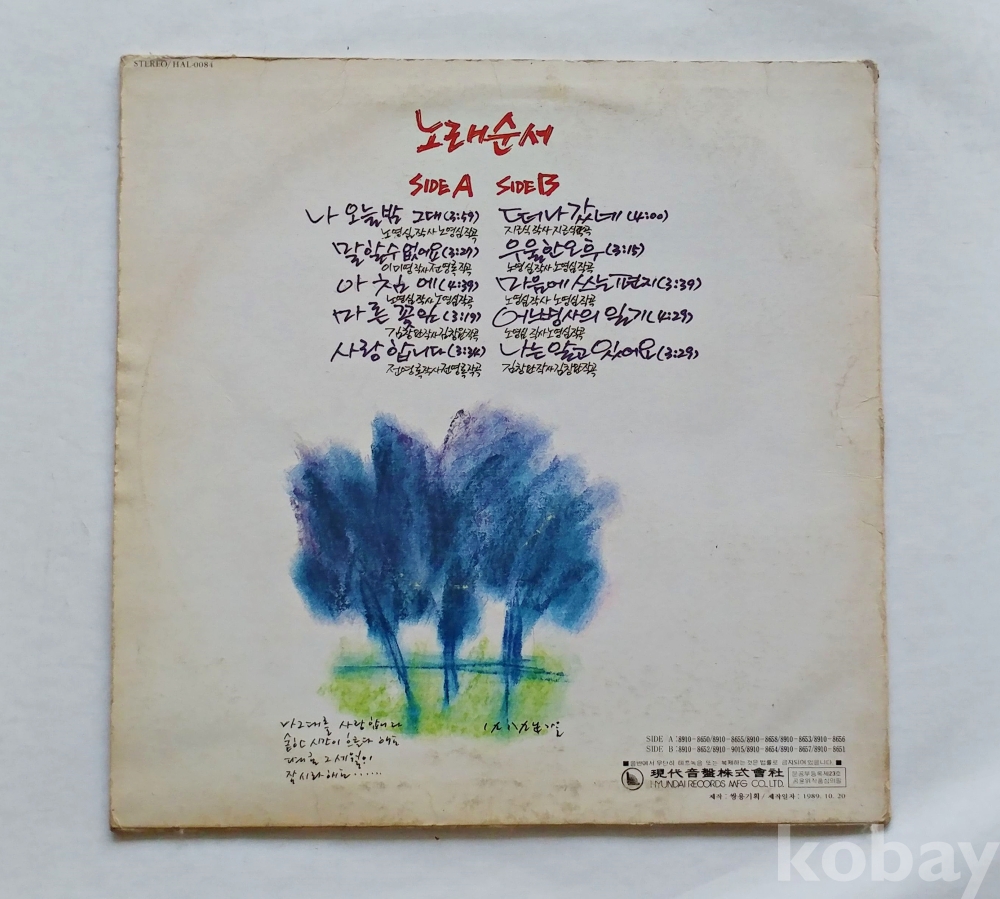 STEREO/HAL-0084
노래순서
SIDE A
나 오늘밤 그대 (3:59)
노영심 작사 노영심 작곡
말할수없어요 (3:27)
이미영 작사 전영록 작곡
아침에 (4:39)
노영심 작사 노영심 작곡
마른 꽃잎 (3:19)
김창완 작사 김창완 작곡
사랑합니다 (3:34)
전영록 작사 전영록 작곡
SIDE B
떠나갔네 (4:00)
지근식 작사 지근식 작곡
우울한오후 (3:15)
노영심 작사 노영심 작곡
마음에 쓰는 편지 (3:39)
노영심 작사 노영심 작곡
어느병사의 일기 (4:29)
노영심 작사 노영심 작곡
나는 알고 있어요 (3:29)
김창완 작사 김창완 작곡
나 그대를 사랑합니다
숱한 시간이 흐른다 해도
때론 그 세월이
잠시라 해도 ......
SIDE A :8910-8650/8910-8655/8910-8658/8910-8653/8910-8656
SIDE B :8910-8652/8910-9015/8910-8654/8910-8657/8910-8651
■음반에서 무단히 테이프녹음 또는 복제하는것은 법률로 금지되어있읍니다.■
現代音盤株式會社
HYUNDAI RECORDS MFG CO., LTD.
제작 : 쌍용기획 / 제작일자 : 1989. 10. 20
kobay